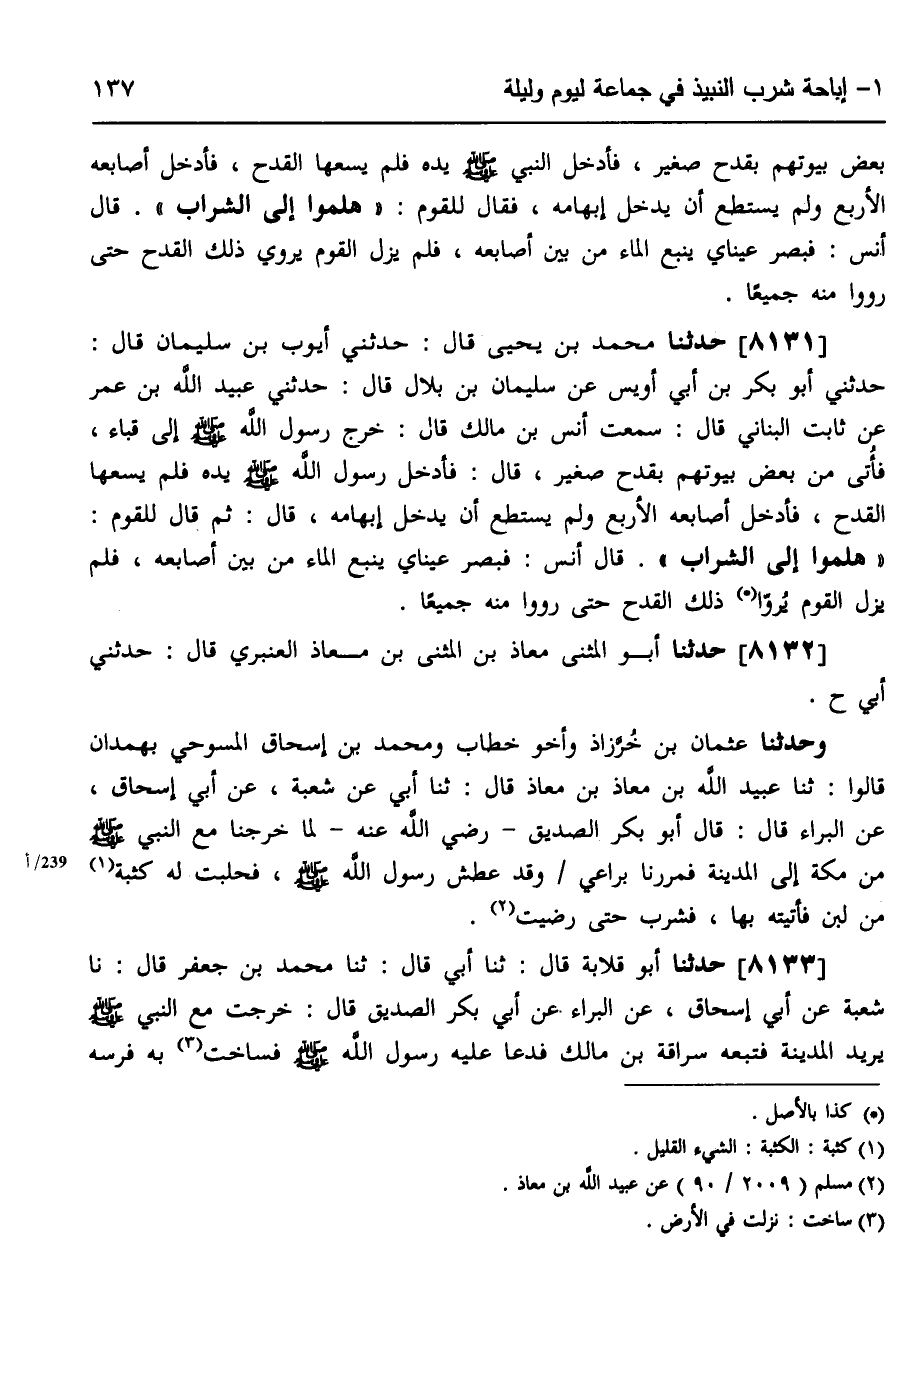 ١- إباحة شرب النبيذ في جماعة ليوم وليلة ١٣٧
بعض بيوتهم بقدح صغير ، فأدخل النبي ﷺ يده فلم يسعها القدح ، فأدخل أصابعه
الأربع ولم يستطع أن يدخل إبهامه ، فقال للقوم : « هلموا إلى الشراب » . قال
أنس : فبصر عيناي ينبع الماء من بين أصابعه ، فلم يزل القوم يروي ذلك القدح حتى
رووا منه جميعًا .
[٨١٣١] حدثنا محمد بن يحيى قال : حدثني أيوب بن سليمان قال :
حدثني أبو بكر بن أبي أويس عن سليمان بن بلال قال : حدثني عبيد اللَّه بن عمر
عن ثابت البناني قال : سمعت أنس بن مالك قال : خرج رسول اللَّه ﷺ إلى قباء ،
فأُتى من بعض بيوتهم بقدح صغير ، قال : فأدخل رسول اللَّه ﷺ يده فلم يسعها
القدح ، فأدخل أصابعه الأربع ولم يستطع أن يدخل إبهامه ، قال : ثم قال للقوم :
« هلموا إلى الشراب » . قال أنس : فبصر عيناي ينبع الماء من بين أصابعه ، فلم
يزل القوم يُروّا(*) ذلك القدح حتى رووا منه جميعًا .
[٨١٣٢] حدثنا أبـو المثنى معاذ بن المثنى بن مـعاذ العنبري قال : حدثني
أبي ح .
وحدثنا عثمان بن خُرَّزاذ وأخو خطاب ومحمد بن إسحاق المسوحي بهمدان
قالوا : ثنا عبيد اللَّه بن معاذ بن معاذ قال : ثنا أبي عن شعبة ، عن أبي إسحاق ،
عن البراء قال : قال أبو بكر الصديق - رضي اللَّه عنه - لما خرجنا مع النبي ﷺ
من مكة إلى المدينة فمررنا براعي / وقد عطش رسول اللَّه ﷺ ، فحلبت له كثبة(١)
239/أ
من لبن فأتيته بها ، فشرب حتى رضيت(٢) .
[٨١٣٣] حدثنا أبو قلابة قال : ثنا أبي قال : ثنا محمد بن جعفر قال : نا
شعبة عن أبي إسحاق ، عن البراء عن أبي بكر الصديق قال : خرجت مع النبي ﷺ
يريد المدينة فتبعه سراقة بن مالك فدعا عليه رسول اللَّه ﷺ فساخت(٣) به فرسه
(*) كذا بالأصل .
(١) كثبة : الكثبة : الشيء القليل .
(٢) مسلم ( ٢٠٠٩ / ٩٠ ) عن عبيد اللَّه بن معاذ .
(٣) ساخت : نزلت في الأرض .